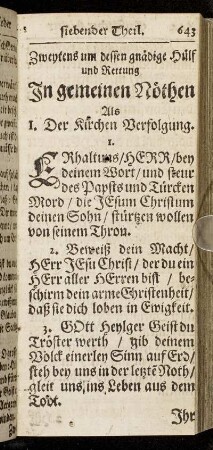 siebender Theil. 643
Zweytens um dessen gnädige Hülf
und Rettung
In gemeinen Nöthen
Als
1. Der Kirchen Verfolgung.
1.
ERhalt uns/HERR/bey
deinem Wort/und steur
des Papsts und Türcken
Mord / die JEsum Christum
deinen Sohn / stürtzen wollen
von seinem Thron.
2. Beweiß dein Macht/
HErr JEsu Christ / der du ein
HErr aller HErren bist / be-
schirm dein arme Christenheit/
daß sie dich loben in Ewigkeit.
3. GOtt Heylger Geist du
Tröster werth / gib deinem
Volck einerley Sinn auf Erd/
steh bey uns in der letzte Noth/
gleit uns ins Leben aus dem
Todt.
Ihr